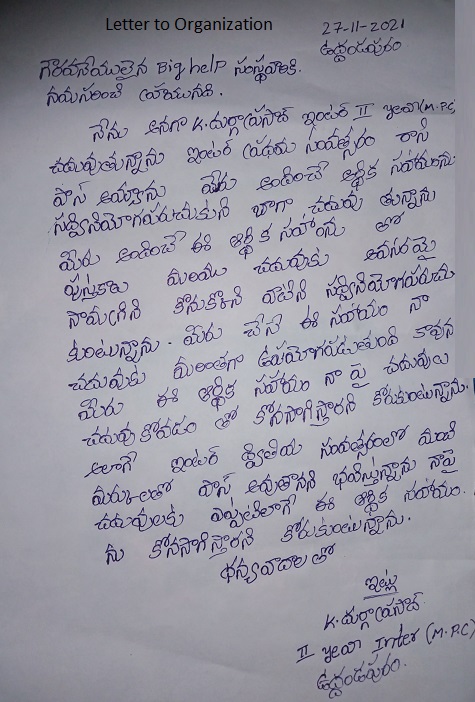 Letter to Organization
27-11-2021
ఉద్దండపురం
గౌరవనీయులైన Big help సంస్థవారికి.
నమస్కరించి వ్రాయునది.
నేను అనగా K.దుర్గాప్రసాద్ ఇంటర్ II year (M.P.C)
చదువుతున్నాను ఇంటర్ ప్రథమ సంవత్సరం రాసి
పాస్ అయ్యాను మీరు అందించే ఆర్థిక సహాయంను
సద్వినియోగపరుచుకుని బాగా చదువు తున్నాను
మీరు అందించే ఈ ఆర్థిక సహాయం తో
పుస్తకాలు మరియు చదువుకు అవసరమై
సామాగ్రిని కొనుకొని వాటిని సద్వినియోగపరుచు
కుంటున్నాను. మీరు చేసే ఈ సహాయం నా
చదువుకు మరింతగా ఉపయోగపడుతుంది కావున
మీరు ఈ ఆర్థిక సహాయం నా పై చదువుల
చదువు కోవడం తో కొనసాగిస్తారని కోరుకుంటున్నాను.
అలాగే ఇంటర్ ద్వితీయ సంవత్సరంలో మంచి
మార్కులతో పాస్ అవుతానని భావిస్తున్నాను నాపై
చదువులకు ఎప్పటిలాగే ఈ ఆర్థిక సహాయం.
ను కొనసాగిస్తారని కోరుకుంటున్నాను.
ధన్యవాదాల తో
ఇట్లు
K.దుర్గాప్రసాద్.
II year Inter (M.P.C)
ఉద్దండపురం.